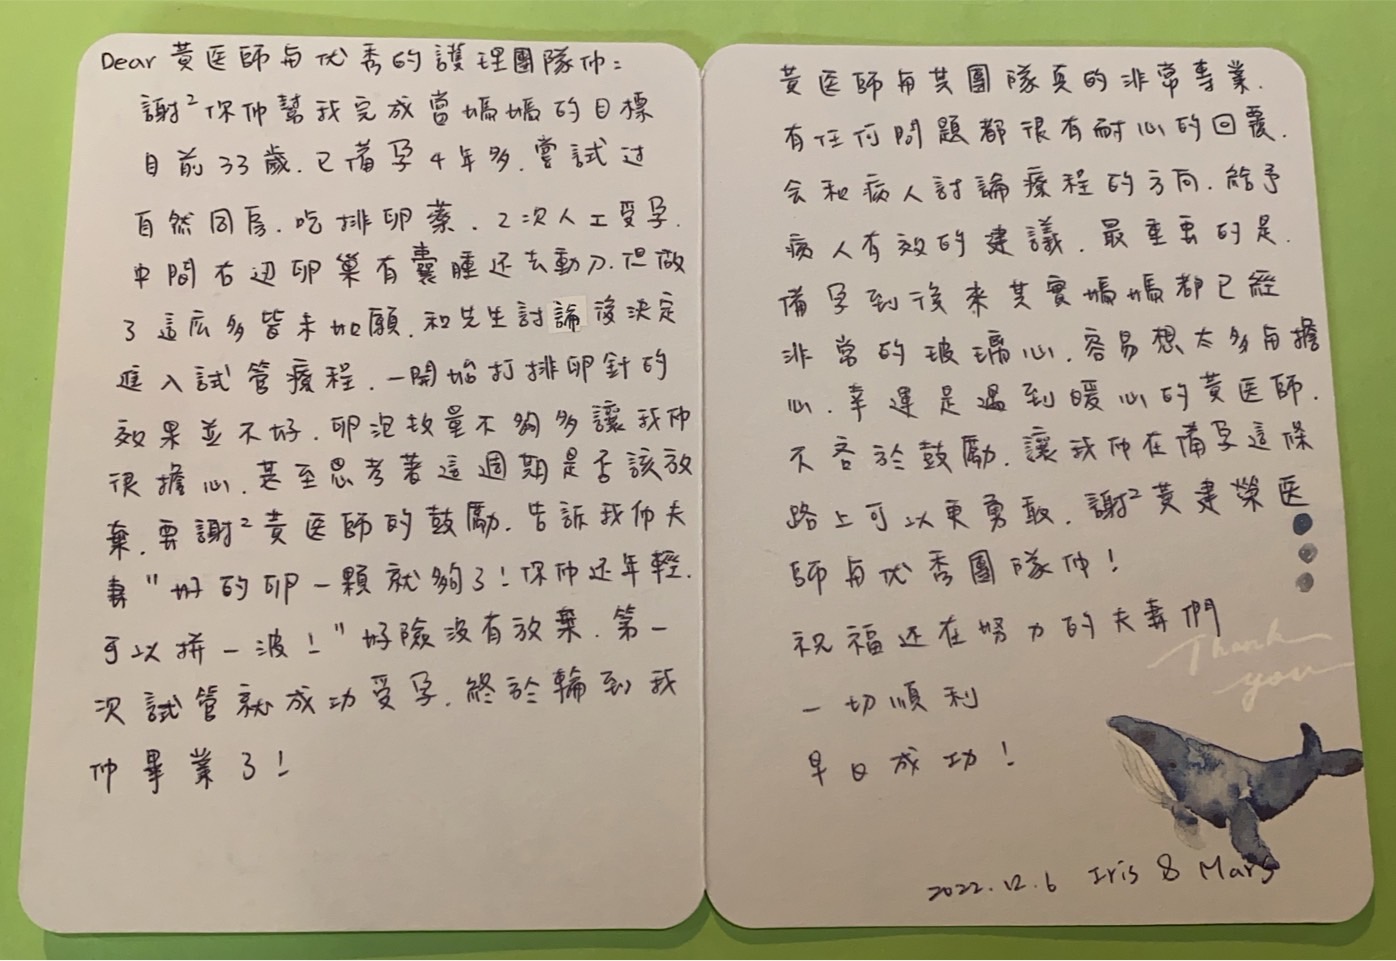 Dear 黃医師与优秀的護理團隊们：
謝²你们幫我完成當媽媽的目標
目前33歲．已備孕4年多．嘗試过
自然同房．吃排卵藥．2次人工受孕．
中間右边卵巢有囊腫还去動刀．但做
了這広多皆未如願．和先生討論後決定
進入試管療程．一開始打排卵針的
效果並不好．卵泡数量不夠多讓我们
很擔心．甚至思考著這週期是否該放
棄．要謝²黃医師的鼓勵．告訴我们夫
妻"好的卵一顆就夠了！你们还年輕．
可以拼一波！"好險沒有放棄．第一
次試管就成功受孕．終於輪到我
们畢業了！
黃医師与其團隊真的非常專業．
有任何問題都很有耐心的回覆．
会和病人討論療程的方向．給予
病人有效的建議．最重要的是．
備孕到後來其實媽媽都已經
非常的玻璃心．容易想太多与擔
心．幸運是遇到暖心的黃医師．
不吝於鼓勵．讓我们在備孕這條
路上可以更勇敢．謝²黃建榮医
師与优秀團隊们！
祝福还在努力的夫妻們
一切順利
早日成功！
Thank
you
2022.12.6 Iris & Mars